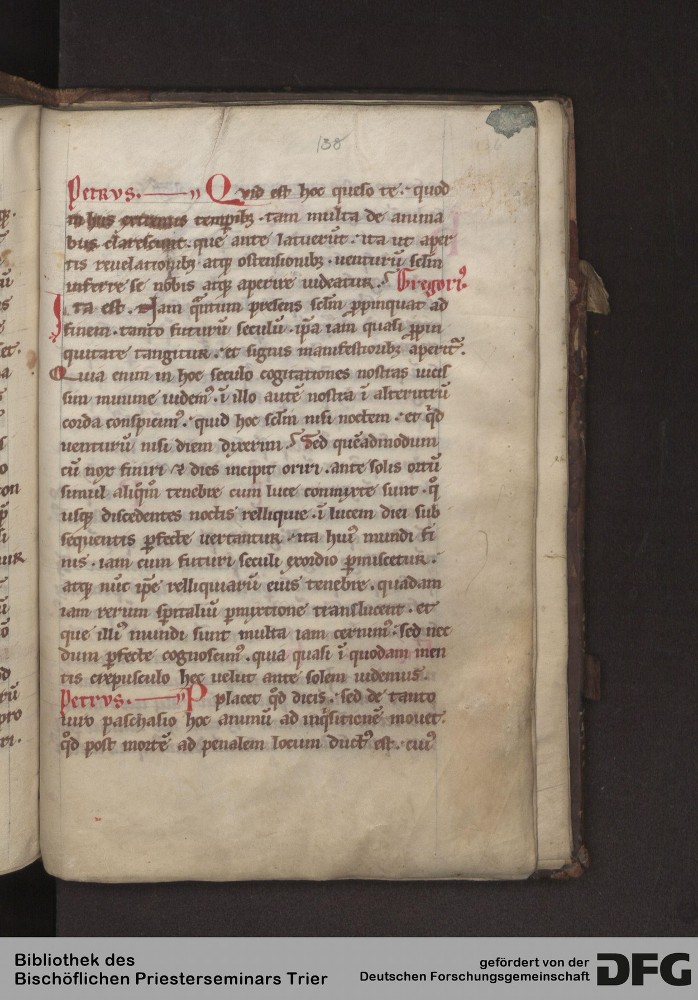 138
PETRVS. Quid est hoc queso te. quod
in hus extremis temporibꝫ. tam multa de anima
bus clarescunt. que ante latuerūt. ita ut aper
tis reuelationibꝫ atqꝫ ostensionibꝫ. uenturū sclm̄
inferre se nobis atqꝫ aperire uideatur. Gregori⁹.
Ita est. Nam qͣntum presens sclm̄ ꝓpinquat ad
finem. tanto futurū seculū. ip̄a iam quasi ꝓpin
quitate tangitur. et signis manifestioribꝫ aperitᷣ.
Quia enim in hoc seculo cogitationes nostras uicis
sim minime uidem⁹. ī illo autē nostra ī alterutrū
corda conspicim⁹. quid hoc sclm̄ nisi noctem. et qͥd
uenturū nisi diem dixerim. Sed quēadmodum
cū nox finiri ⁊ dies incipit oriri. ante solis ortū
simul aliqͣm̄ tenebre cum luce commixte sunt. qͦ
usqꝫ discedentes noctis relliquie. ī lucem diei sub
sequentis ꝑfecte uertantur. ita hui⁹ mundi fi
nis. iam cum futuri seculi exordio ꝑmiscetur.
atqꝫ nūc ip̄e relliquiarū eius tenebre. quadam
iam rerum sp̄italiū ꝑmyxtione translucent. et
que illi⁹ mundi sunt multa iam cernim⁹. sed nec
dum ꝑfecte cognoscim⁹. quia quasi ī quodam men
tis crepusculo hec uelut ante solem uidemus.
PETRVS. Placet qd̄ dicis. sed de tanto
uiro paschasio hoc animū ad inqͥsitionē mouet.
qd̄ post mortē ad penalem locum duct⁹ est. cui⁹
Bibliothek des
Bischöflichen Priesterseminars Trier
gefördert von der
Deutschen Forschungsgemeinschaft
DFG